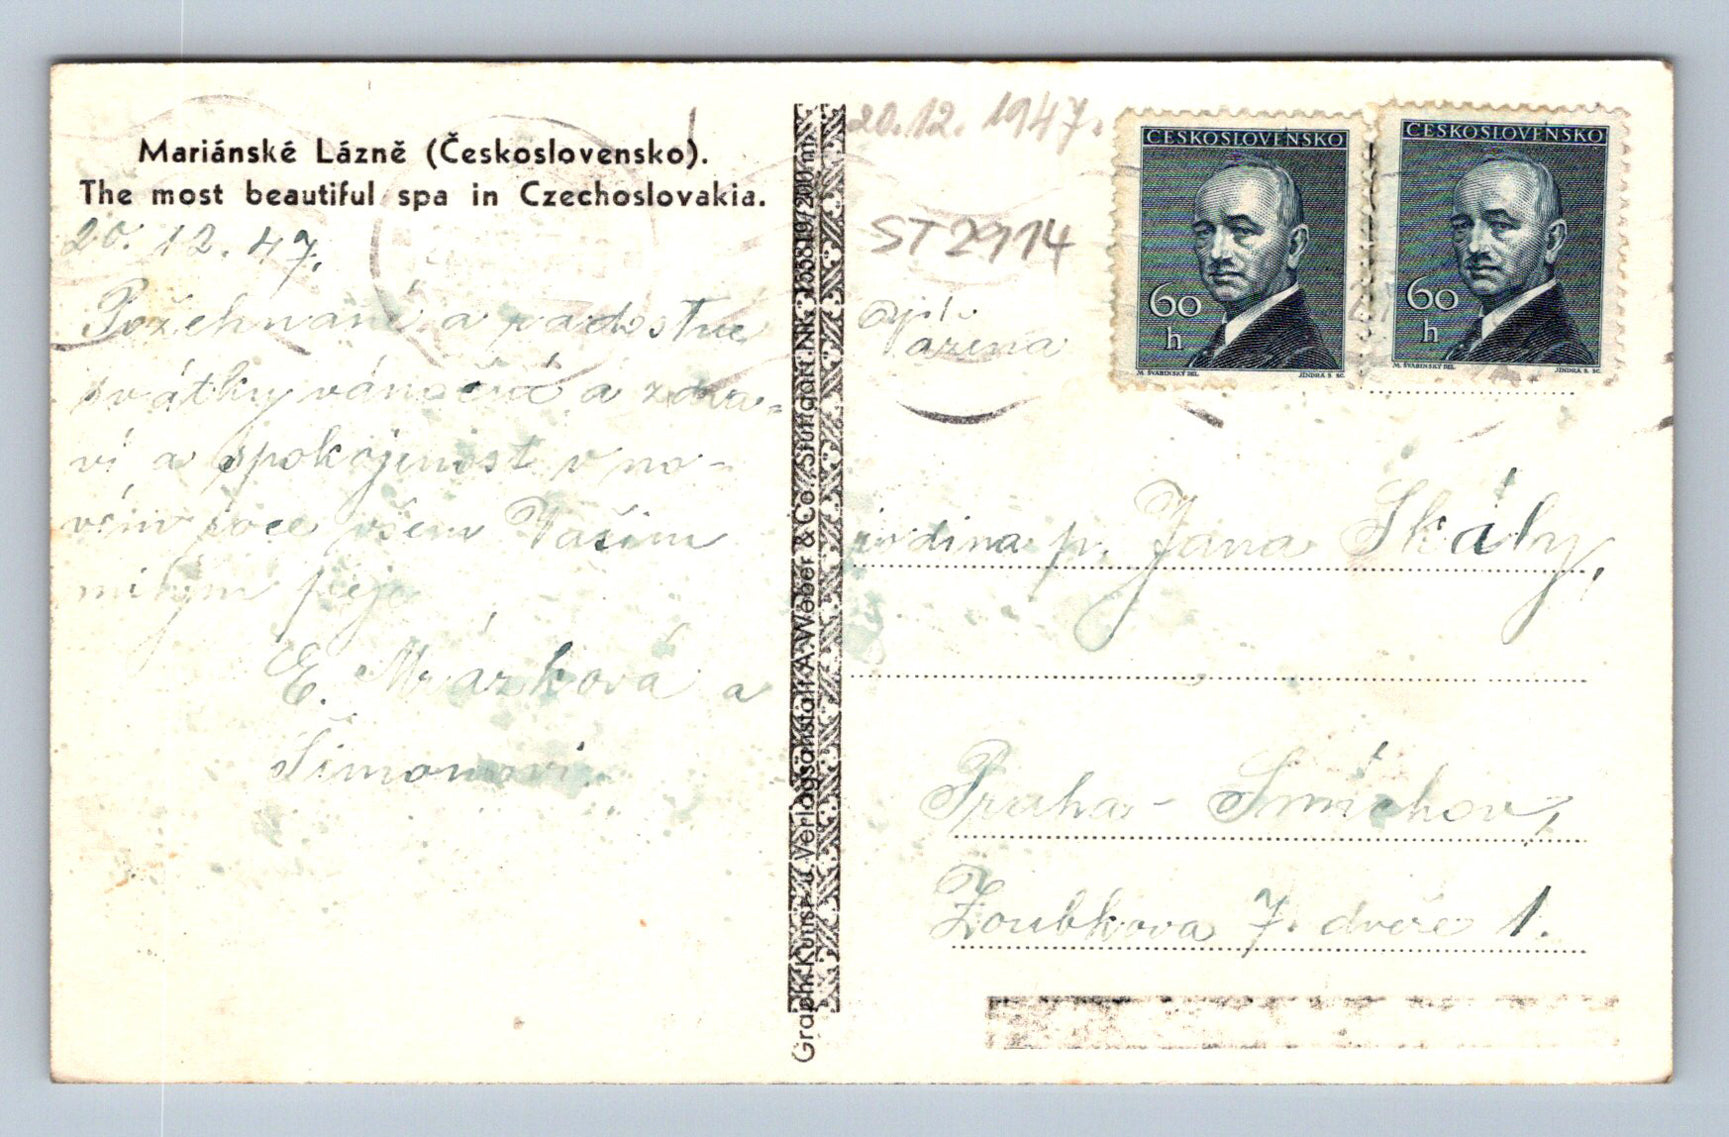 Mariánské Lázně (Československo).
The most beautiful spa in Czechoslovakia.
20. 12. 47.
Požehnané a radostné
svátky vánoční a zdra-
ví a spokojenost v no-
vém roce všem Vašim
milým přeje
E. Mrázková a
Šimonovi.
Graph. Kunst- u. Verlagsanstalt A. Weber & Co., Stuttgart Nr.
20.12. 1947.
ST 2914
ČESKOSLOVENSKO
60
h
M. ŠVABINSKÝ DEL.
JINDRA S. SC.
ČESKOSLOVENSKO
60
h
M. ŠVABINSKÝ DEL.
JINDRA S. SC.
rodina p. Jana Skály,
Praha - Smíchov,
Zoubkova 7. dveře 1.